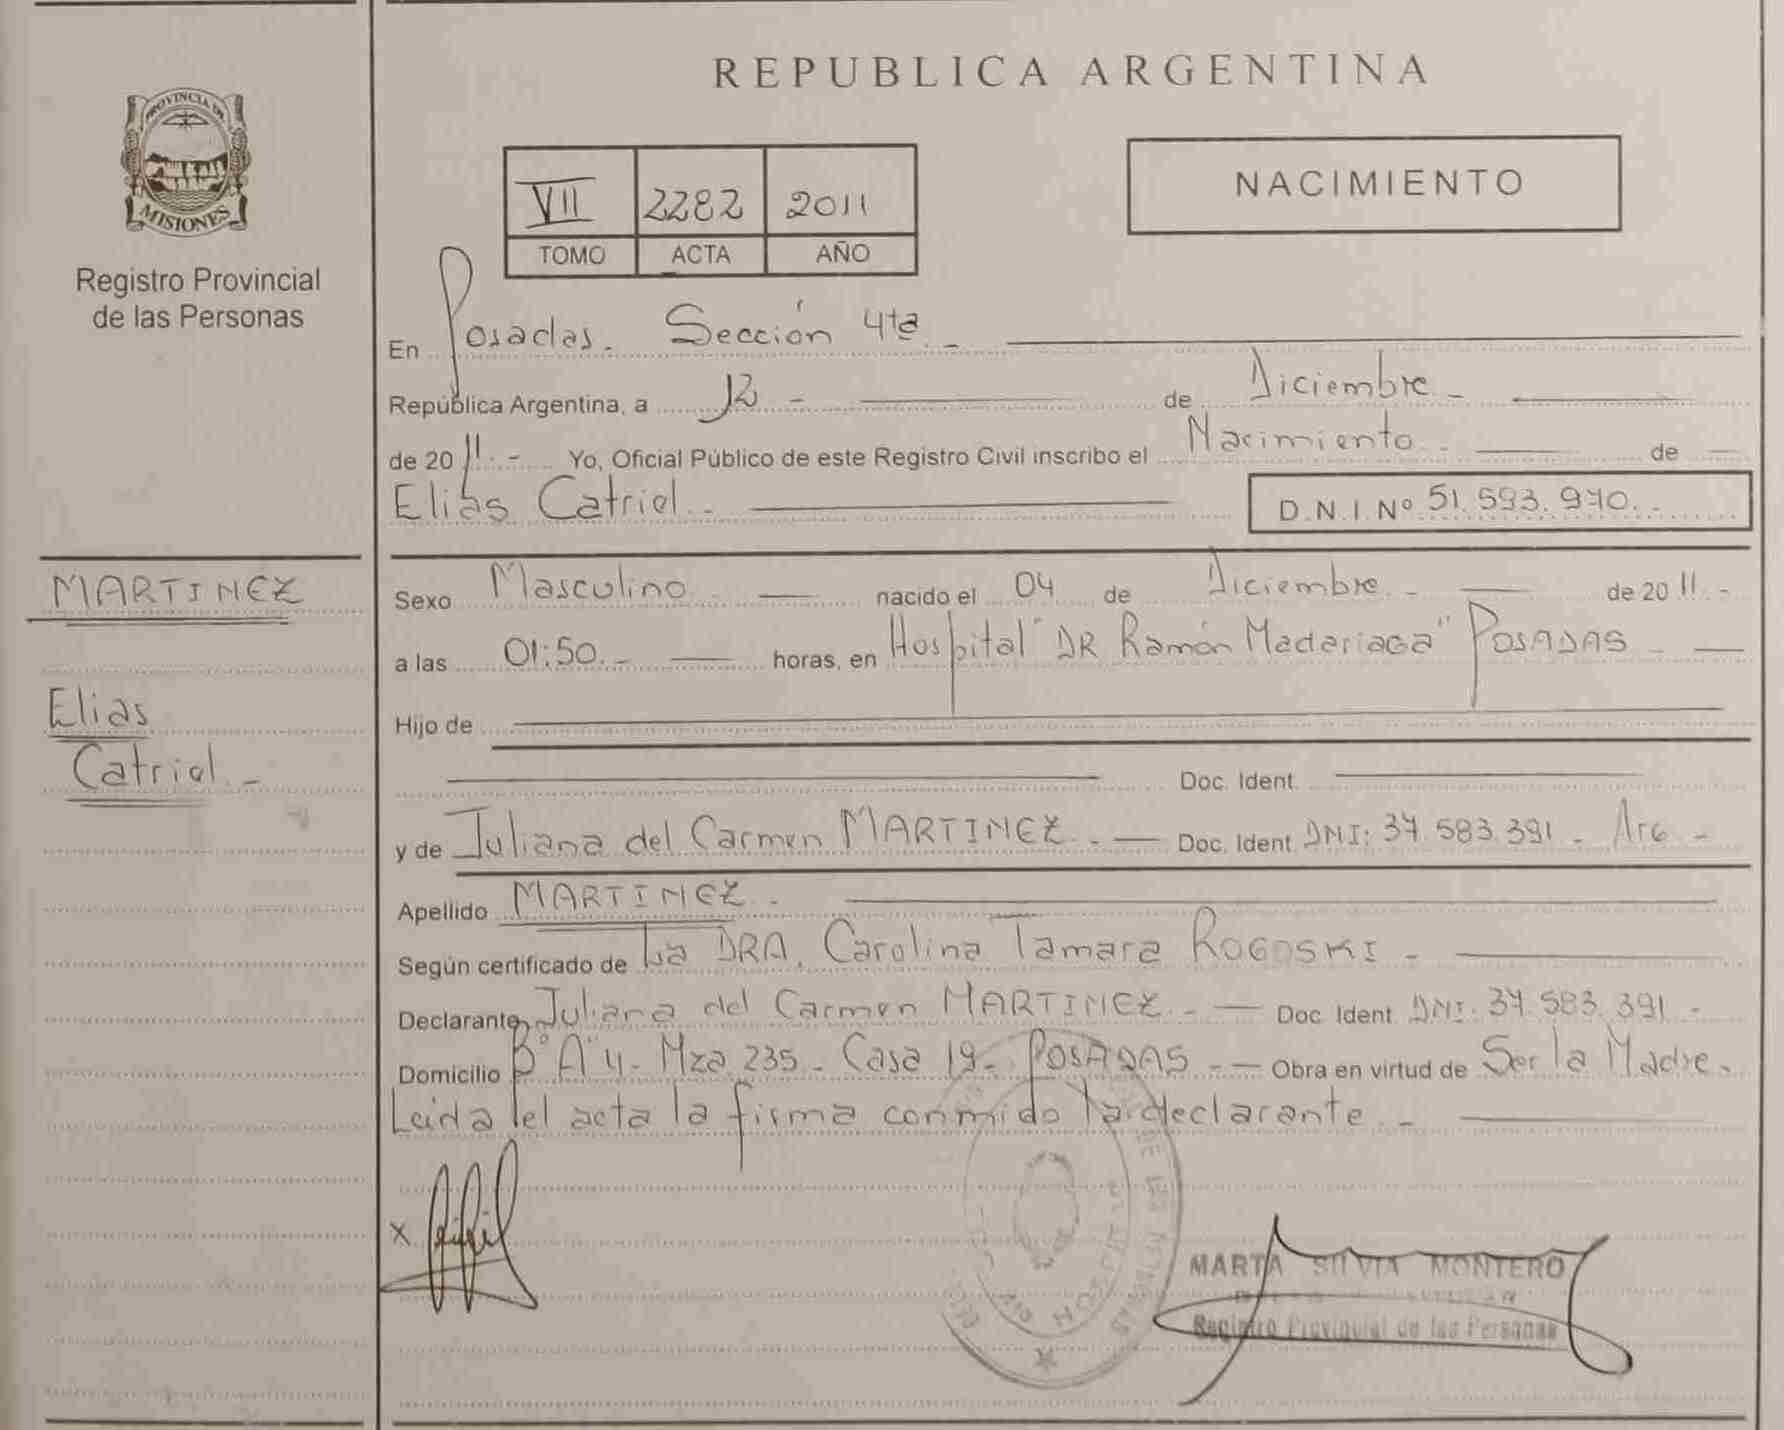 PROVINCIA DE
MISIONES
Registro Provincial
de las Personas
MARTINEZ
Elias
Catriel.-
REPUBLICA ARGENTINA
NACIMIENTO
VII 2282 2011
TOMO ACTA AÑO
En Posadas. Sección 4ta.-
República Argentina, a 12 - de Diciembre.-
de 2011.- Yo, Oficial Público de este Registro Civil inscribo el Nacimiento - de
Elias Catriel.- D.N.I. Nº 51.593.970.-
Sexo Masculino - nacido el 04 de Diciembre.- de 2011.-
a las 01:50.- horas, en Hospital "DR Ramón Madariaga" POSADAS -
Hijo de
Doc. Ident.
y de Juliana del Carmen MARTINEZ.- Doc. Ident. DNI: 37.583.391 - Arg -
Apellido MARTINEZ.-
Según certificado de La DRA. Carolina Tamara ROGOSKI -
Declarante Juliana del Carmen MARTINEZ.- Doc. Ident. DNI: 37.583.391 -
Domicilio Bº "A" 4 - Mza 235 - Casa 19 - POSADAS.- Obra en virtud de Ser la Madre.
Leida el acta la firma conmigo la declarante.-
X
MARTA SILVIA MONTERO
Registro Provincial de las Personas